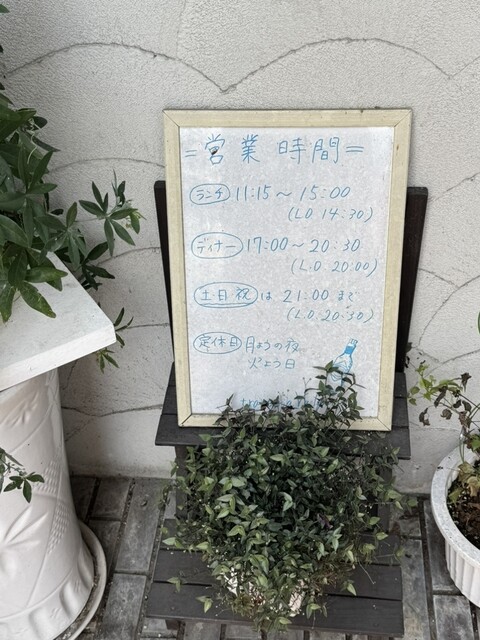 =営業時間=
ランチ 11:15～15:00
(L.O 14:30)
ディナー 17:00～20:30
(L.O 20:00)
土・日・祝は 21:00まで
(L.O. 20:30)
定休日 月ようの夜
火よう日